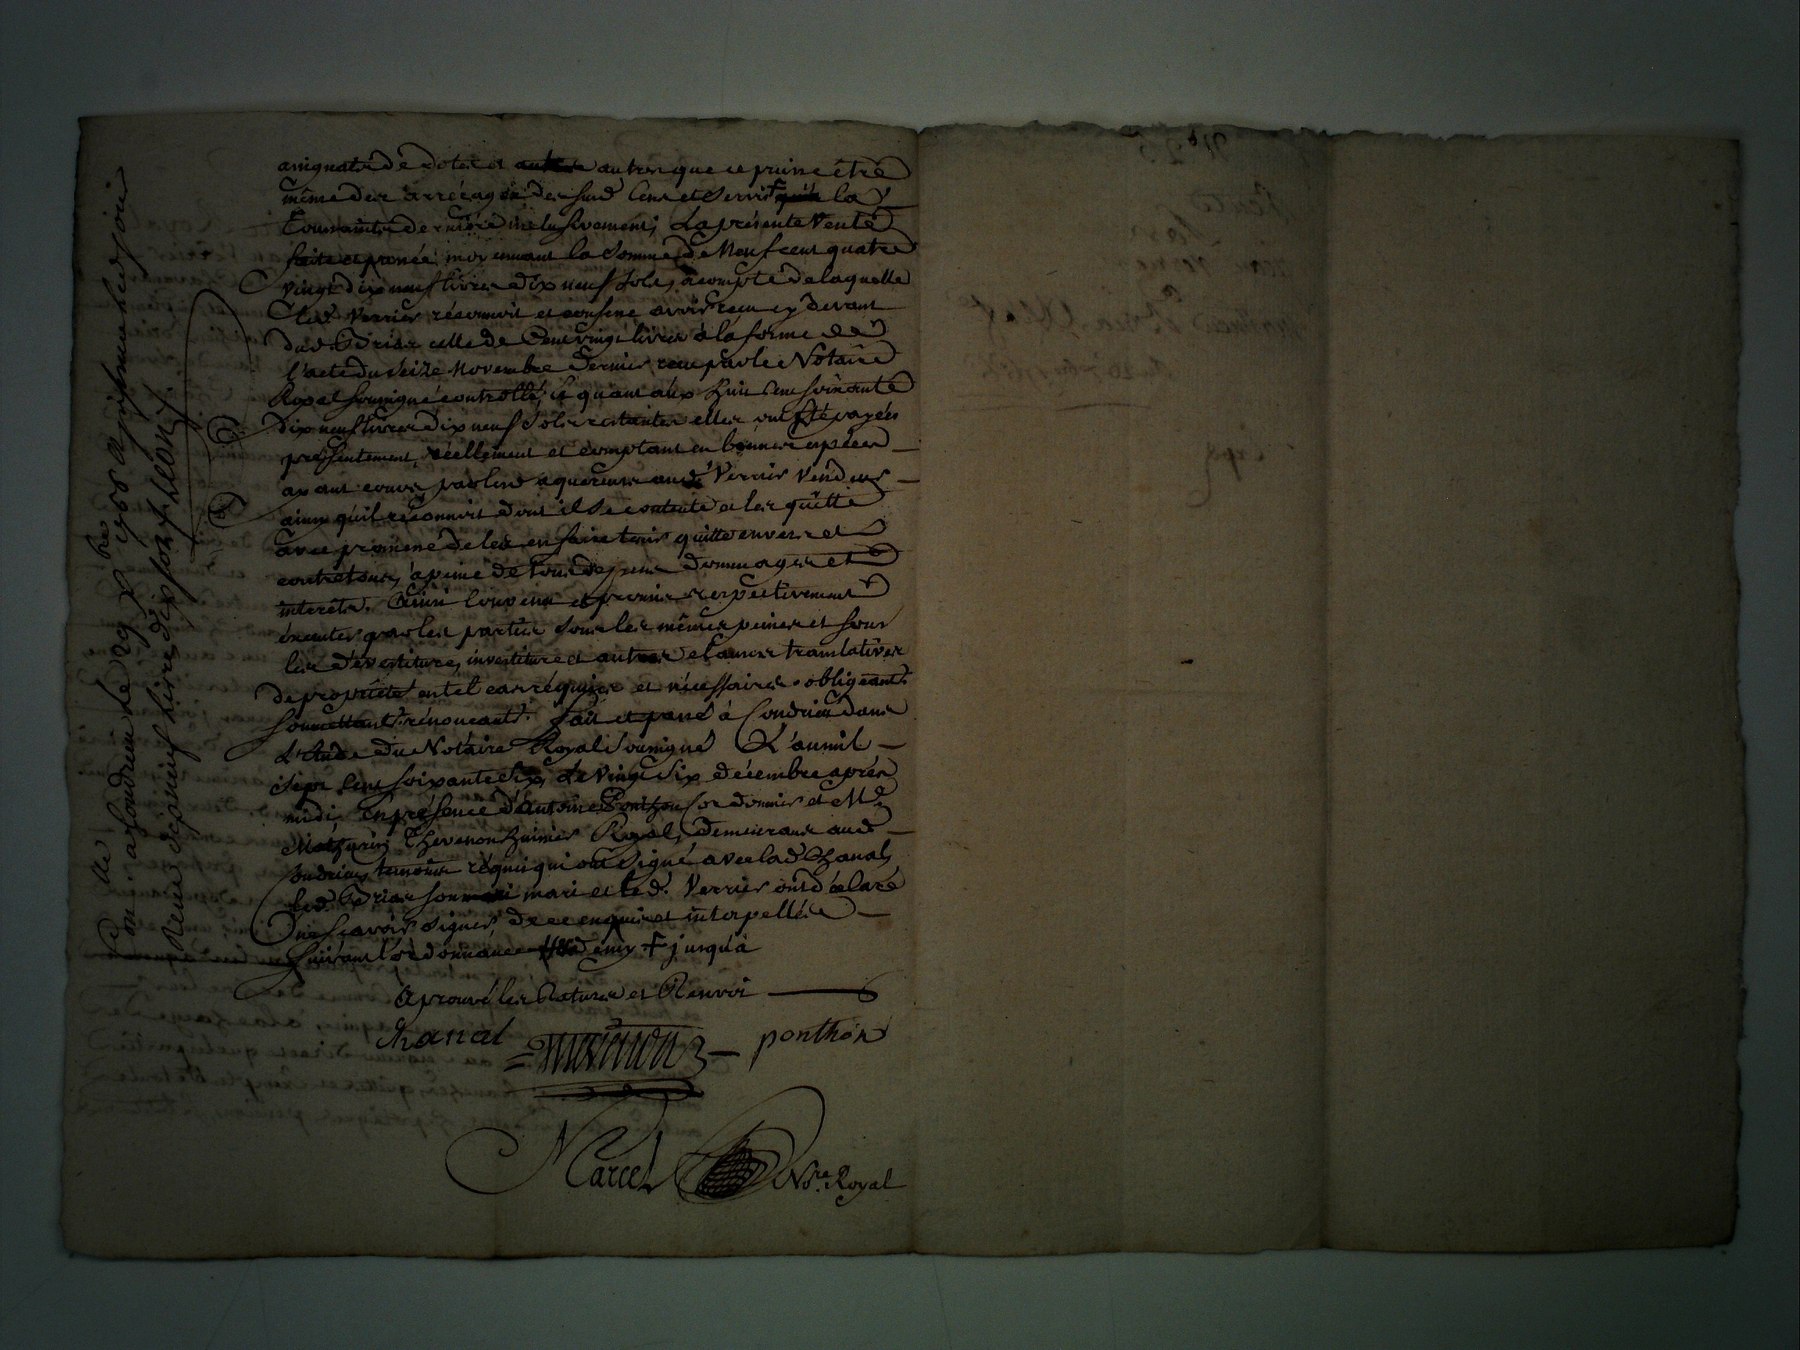 assignats de dotes et autres que ce puisse être
même des arrérages desd. Cens et Servis la
Courante derniere inclusivement, La présente Vente
faite et passée moyennant la Somme de Neuf cent quatre
vingt dix neuf livres dix neuf sols, a compte de laquelle
Led. Verrier réconnoit et confesse avoir recu cy devant
dud. celle de Cent vingt livres à la forme de
l'acte du Seize Novembre dernier recu par le Notaire
Royal soussigné controllé, et quant aux huit Cent soixante
dix neuf livres dix neuf Sols restantes elles ont été payées
présentement, réellement et comptant en bonnes espèces
ayant cours, par les aquereurs aud. Verrier Vendeur
ainsy qu'il réconnoit dont il se contente et les quitte
avec promesse de les en faire tenir quitte envers et
contre tous, a peine de tous dépens dommages et
interêts. Ainsi Convenu et promis respectivement
éxécuter par les parties sous les mêmes peines et sous
les dévestiture, investiture et autres clauses translatives
de proprieté en tel cas réquises et nécessaires. obligeants.
soumettants. rénonceants. fait et passé à Condrieu dans
L'étude du Notaire Royal soussigné L'an mil
Sept Cent soixante six, Le vingt six décembre après
midi, En présence d'antoine Ponthon Cordonnier et Me
Mathurin Thevenon huissier Royal, demeurant aud.
Condrieu, temoins réquis qui ont signé avec lad. Chanal,
led. son mari et led. Verrier ont déclaré
ne scavoir signer, de ce enquis et interpellés
suivant l'ordonnance + jusqu'a
Aprouvé les Ratures et Renvoi
chanal
ponthon
Marcel Nre. Royal
Con. a Condrieu le 29 Xbre 1766
Receu dixneuf livres dix sols